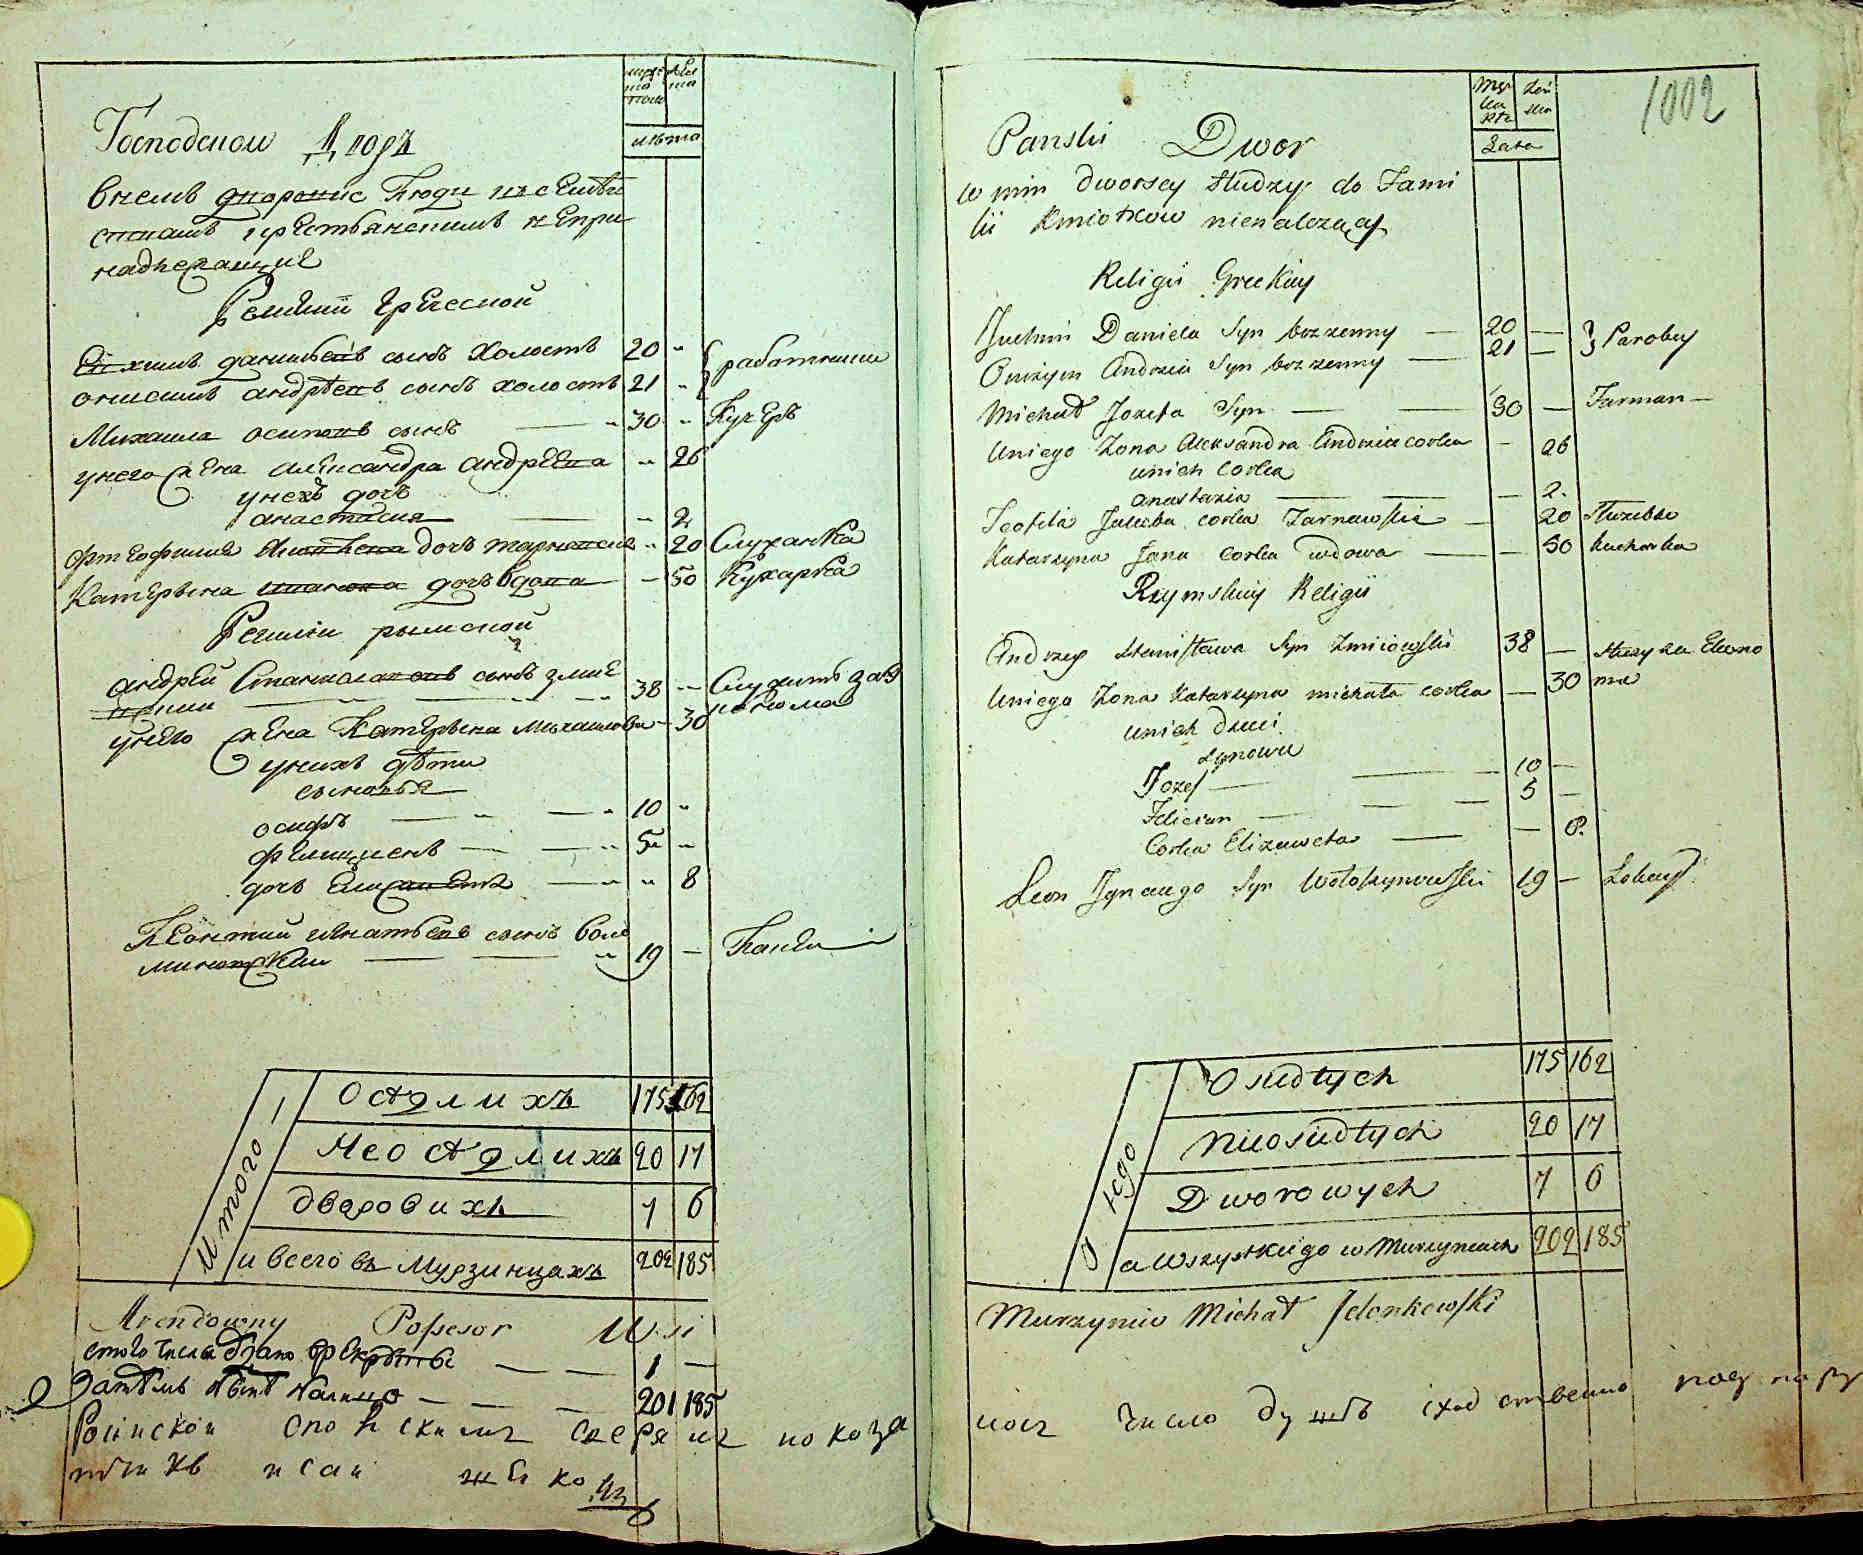 мужеска полу
женска
лѣта
Господской Дворъ
в немъ дворовие Люди
надлежащие
Релѣгии Греческой
Ефхимъ Данильевъ сынъ холостъ 20 - работники
Онисимъ Андрѣевъ сынъ холостъ 21 -
Михаила Осиповъ сынъ — 30 - Кучеръ
у него жена Александра Андреева - 26
у нехъ дочь
анастасия — - 2
дочь - 20 Служанка
Катерына Иванова дочь вдова — 50 Кухарка
Релѣгии рымской
Андрей Станиславовъ сынъ Змие
вский — 38 - Служитъ за э
конома
у него жена Катерына Михайлова - 30
у нихъ дѣти
сыновья
осифъ — 10 -
фелициенъ — 5 -
дочь Елисавета — - 8
Леонтий Игнатьевъ сынъ Воло
шиновский — 19 - Лакей
Итого
Осѣдлихъ 175 162
Неосѣдлихъ 20 17
дворовихъ 7 6
и всего въ Мурзинцахъ 202 185
Arendowny Possesor Wsi
стого числа здано врекруты — 1 —
Затѣмъ налицо — 201 185
1002
Męzka płci
żeńska
Lata
Panski Dwor
w nim dworscy słudzy do Fami
lii Kmiotkow nienalezący
Religii Greckiey
Juchim Daniela Syn bezzenny — 20 — Parobcy
Onizym Andrzeia Syn bezzenny — 21 —
Michał Jozefa Syn — 30 — Furman —
Uniego Zona Aleksandra Andrzeia corka — 26
unich Corka
Anastazia — — 2.
Teofila Jakuba corka Tarnawska — 20 służebna
Katarzyna Jana Corka wdowa — — 50 kucharka
Rzymskiey Religii
Andrzey Stanisława Syn Zmiiowski 38 — służy za Ekono
ma
Uniego Zona Katarzyna Michała corka — 30
unich Dzieci
Synowie
Jozef — 10 —
Felician — 5 —
Corka Elizaweta — — 8.
Leon Ignacego Syn Wołoszynowski 19 — Lokay
O tego
Osiadłych 175 162
Nieosiadłych 20 17
Dworowych 7 6
a Wszystkiego w Murzyncach 202 185
Murzyniec Michał Jelenkowski
число душъ